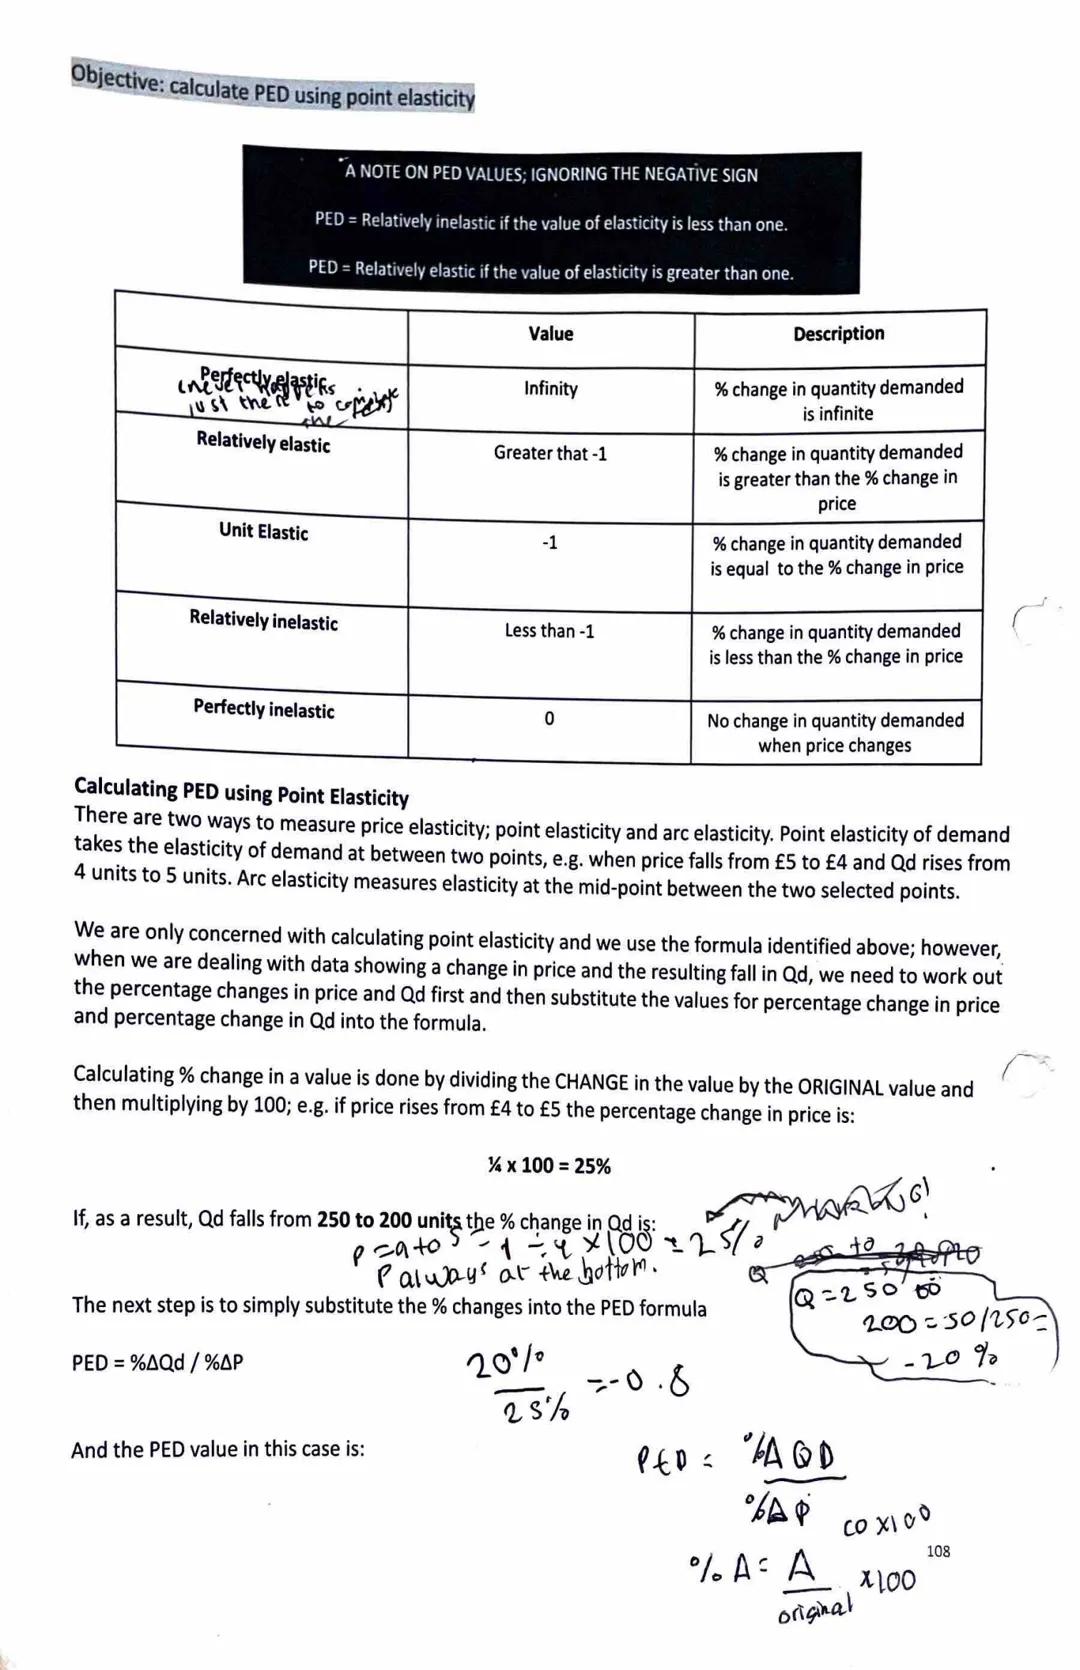 Objective: calculate PED using point elasticity
A NOTE ON PED VALUES; IGNORING THE NEGATIVE SIGN
PED = Relatively inelastic if the value of elasticity is less than one.
PED = Relatively elastic if the value of elasticity is greater than one.
Value
Description
Perfectly elastic
(never happens
just there to complete
the
Infinity
% change in quantity demanded
is infinite
Relatively elastic
Greater that -1
% change in quantity demanded
is greater than the % change in
price
Unit Elastic
-1
% change in quantity demanded
is equal to the % change in price
Relatively inelastic
Less than -1
% change in quantity demanded
is less than the % change in price
Perfectly inelastic
0
No change in quantity demanded
when price changes
Calculating PED using Point Elasticity
There are two ways to measure price elasticity; point elasticity and arc elasticity. Point elasticity of demand
takes the elasticity of demand at between two points, e.g. when price falls from £5 to £4 and Qd rises from
4 units to 5 units. Arc elasticity measures elasticity at the mid-point between the two selected points.
We are only concerned with calculating point elasticity and we use the formula identified above; however,
when we are dealing with data showing a change in price and the resulting fall in Qd, we need to work out
the percentage changes in price and Qd first and then substitute the values for percentage change in price
and percentage change in Qd into the formula.
Calculating % change in a value is done by dividing the CHANGE in the value by the ORIGINAL value and
then multiplying by 100; e.g. if price rises from £4 to £5 the percentage change in price is:
¼ x 100 = 25%
If, as a result, Qd falls from 250 to 200 units the % change in Qd is:
to 5 = 1 ÷ 4 x 100 = 25%
P always at the bottom.
Q
Q = 250 to
200 = 50/250 =
-20%
The next step is to simply substitute the % changes into the PED formula
PED = %∆Qd / %∆P
20%
25%
= -0.8
And the PED value in this case is:
PED = %∆QD
%∆P
x100
108
% ∆ = ∆
original
x100